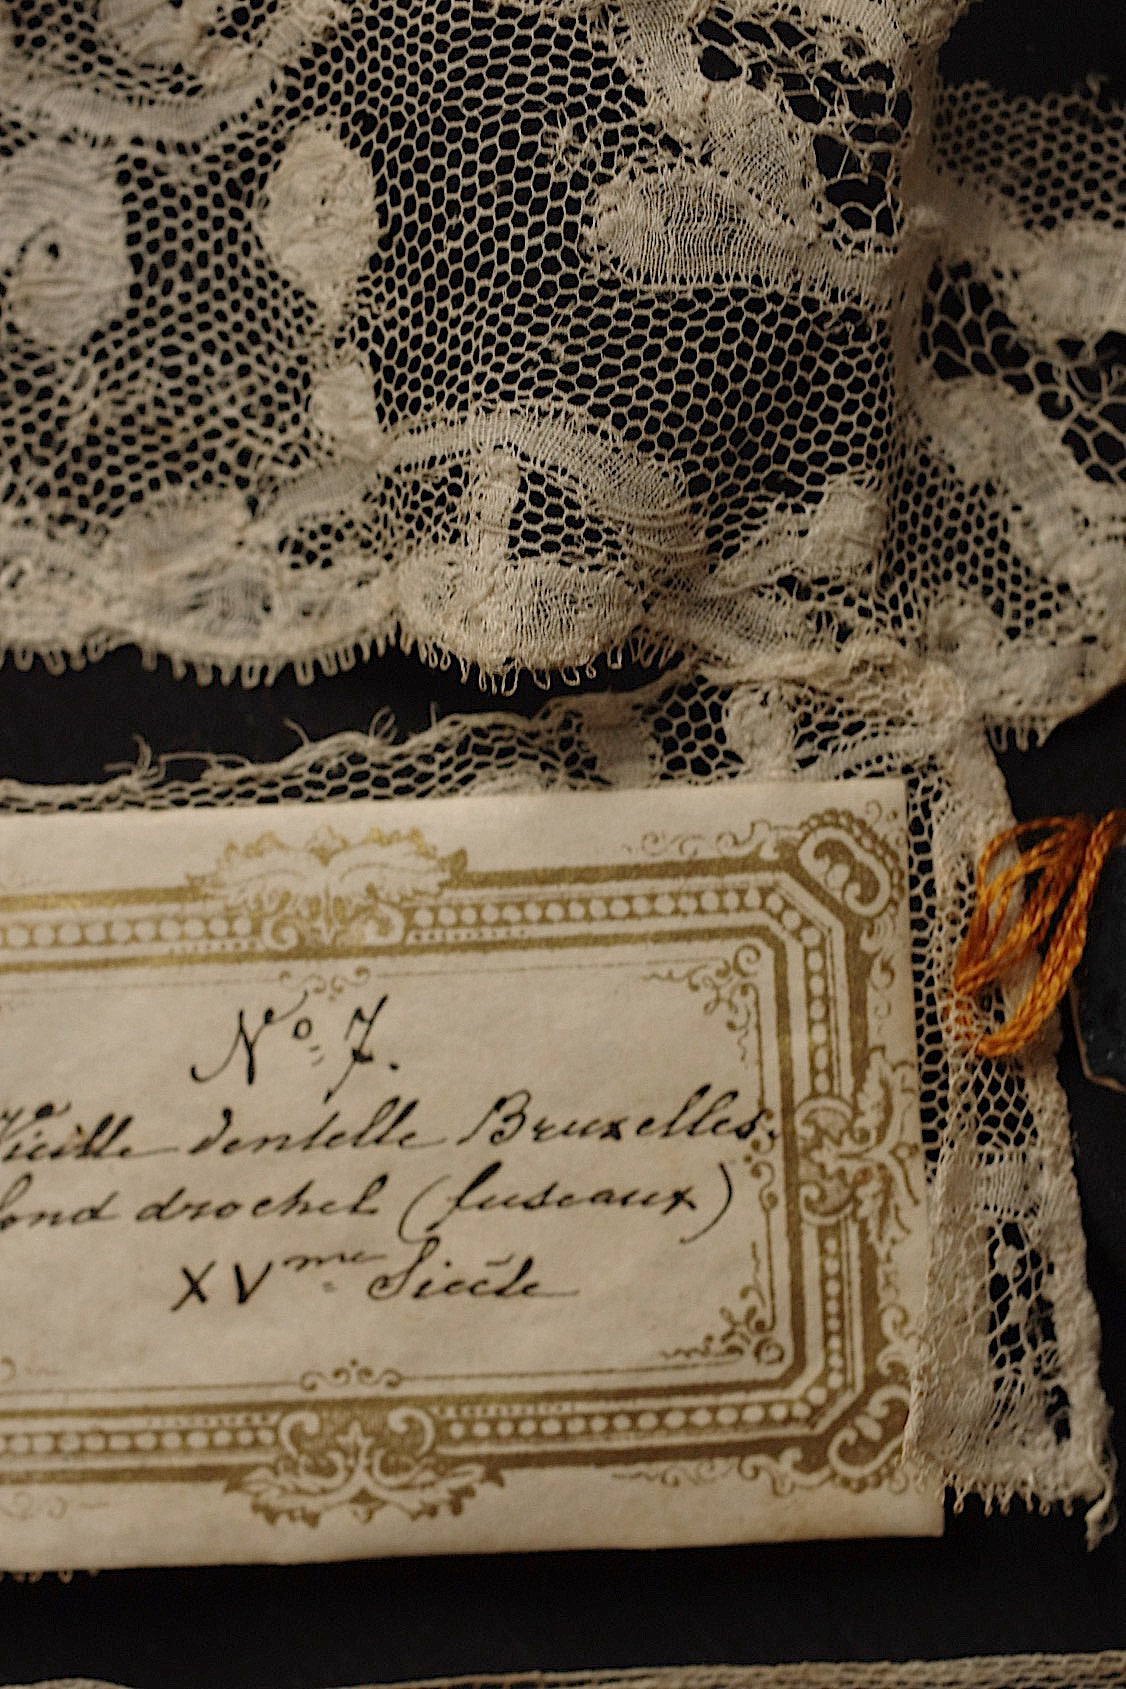 Nº 7.
Vieille dentelle Bruxelles.
fond drochel (fuseaux)
XVme Siècle